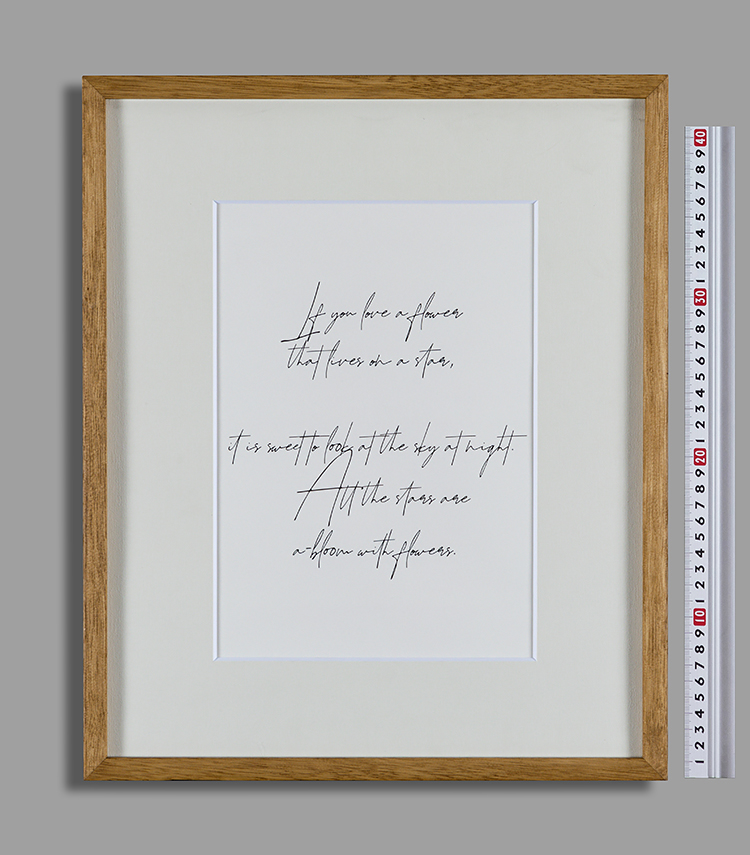 If you love a flower
that lives on a star,
it is sweet to look at the sky at night.
All the stars are
a-bloom with flowers.
1 2 3 4 5 6 7 8 9 10 1 2 3 4 5 6 7 8 9 20 1 2 3 4 5 6 7 8 9 30 1 2 3 4 5 6 7 8 9 40